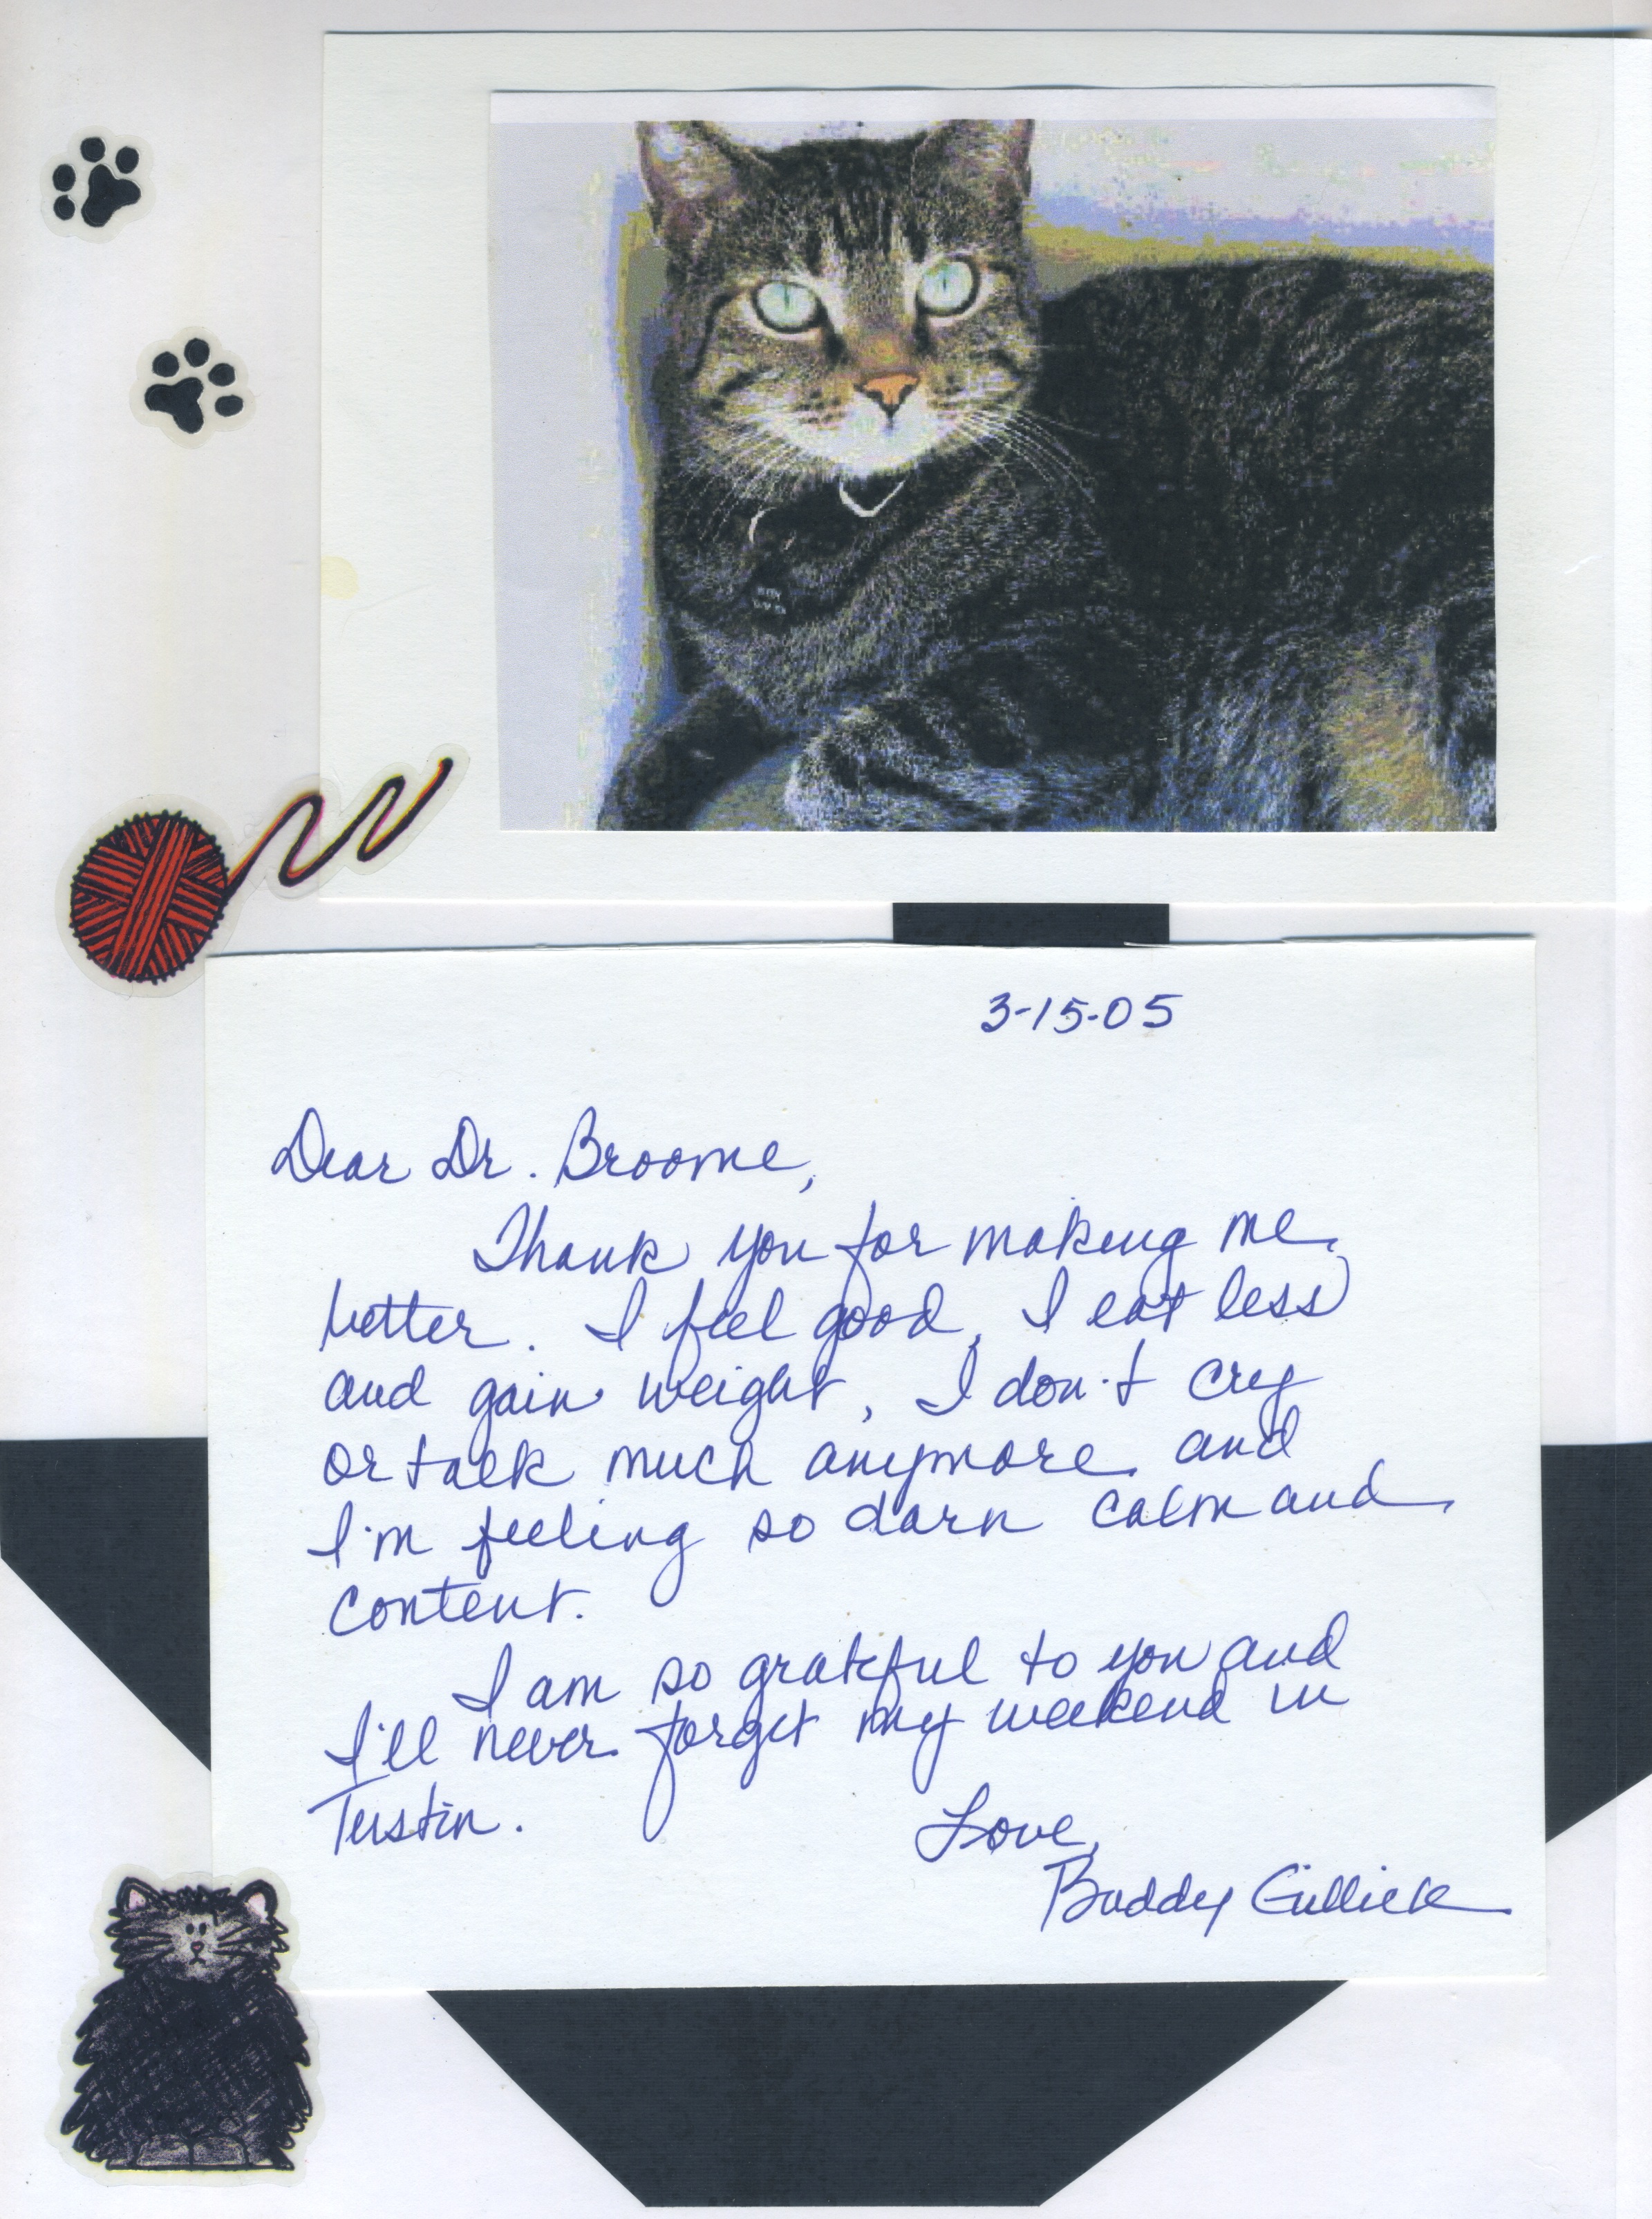 3-15-05
Dear Dr. Broome,
Thank you for making me
better. I feel good, I eat less
and gain weight, I don't cry
or talk much anymore and
I'm feeling so darn calm and
content.
I am so grateful to you and
I'll never forget my weekend in
Tustin.
Love,
Buddy Gullick